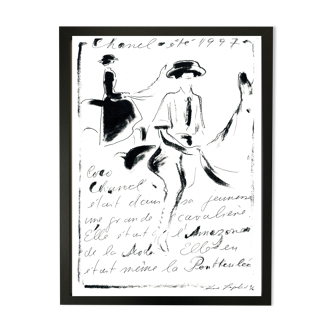 Chanel - été 1997 -
Coco
Chanel
était dans sa jeunesse
une grande cavalière
Elle était l'Amazone
de la Mode Elle en
était même la Penthésilée